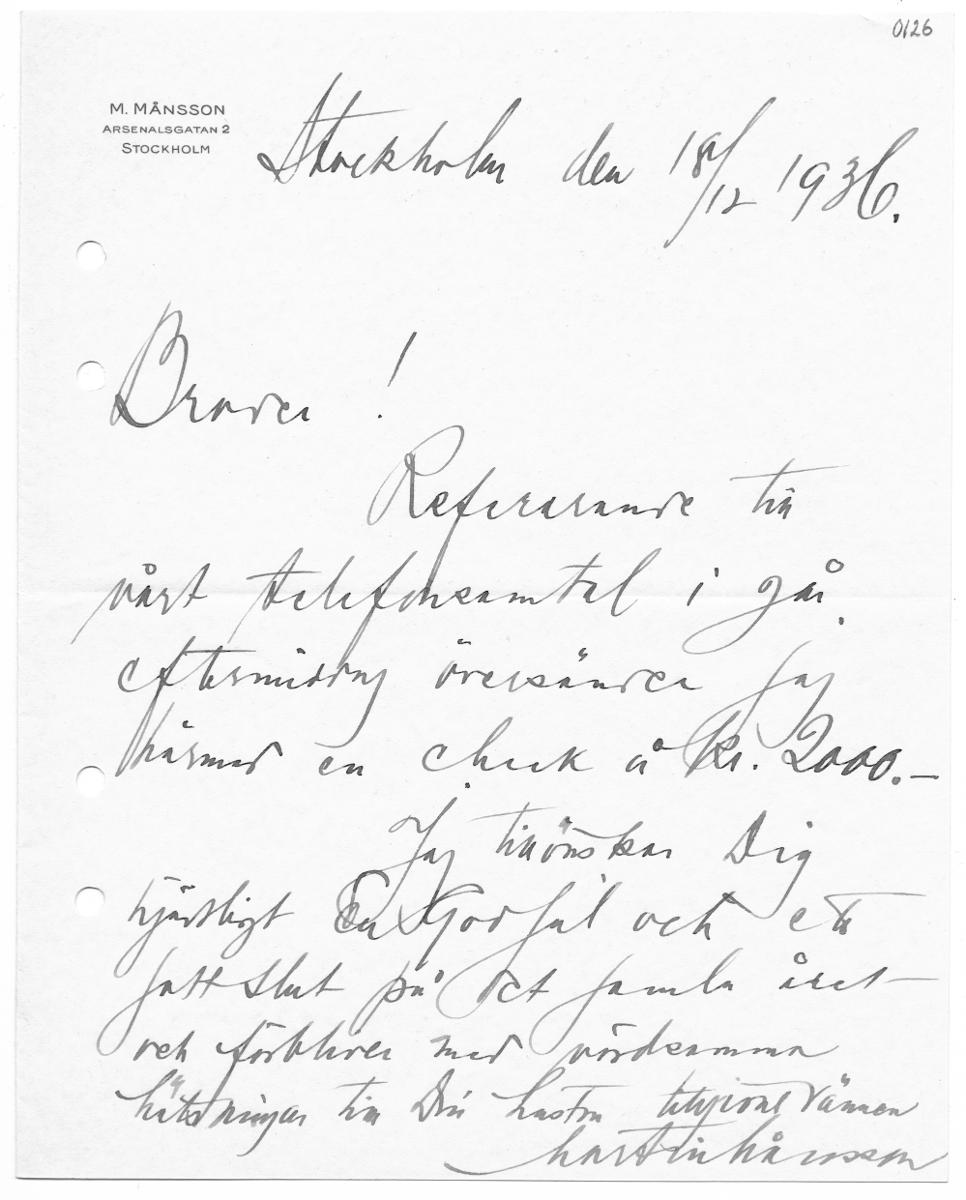 0126
M. MÅNSSON
ARSENALSGATAN 2
STOCKHOLM
Stockholm den 18/12 1936.
Broder!
Refererande till
vårt telefonsamtal i går
eftermiddag översänder jag
härmed en check å kr. 2000.—
Jag tillönskar Dig
hjärtligt En God Jul och ett
gott slut på det gamla året
och förbliver med vördsamma
hälsningar till Din hustru vännen
Martin Månsson